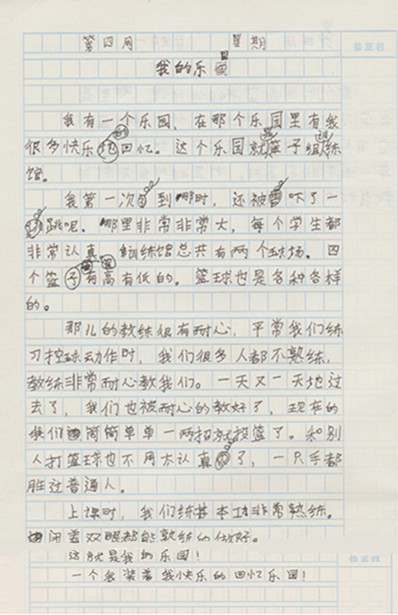 第四周 星期
我的乐园
我有一个乐园，在那个乐园里有我
很多快乐的回忆。这个乐园就篮子训练
馆。
我第一次到哪时，还被吓了一
跳呢。哪里非常非常大，每个学生都
非常认真训练馆总共有两个球场。四
个篮子有高有低的。篮球也是各种各样
的。
那儿的教练很有耐心，平常我们练
习控球动作时，我们很多人都不熟练，
教练非常耐心教我们。一天又一天地过
去了，我们也被耐心的教好了，现在的
我们简简单单一两招就投篮了。和别
人打篮球也不用太认真了，一只手都
胜过普通人。
上课时，我们练基本功非常熟练。
闭着双眼都能熟练的做好。
这就是我的乐园！
一个我装着我快乐的回忆乐园！